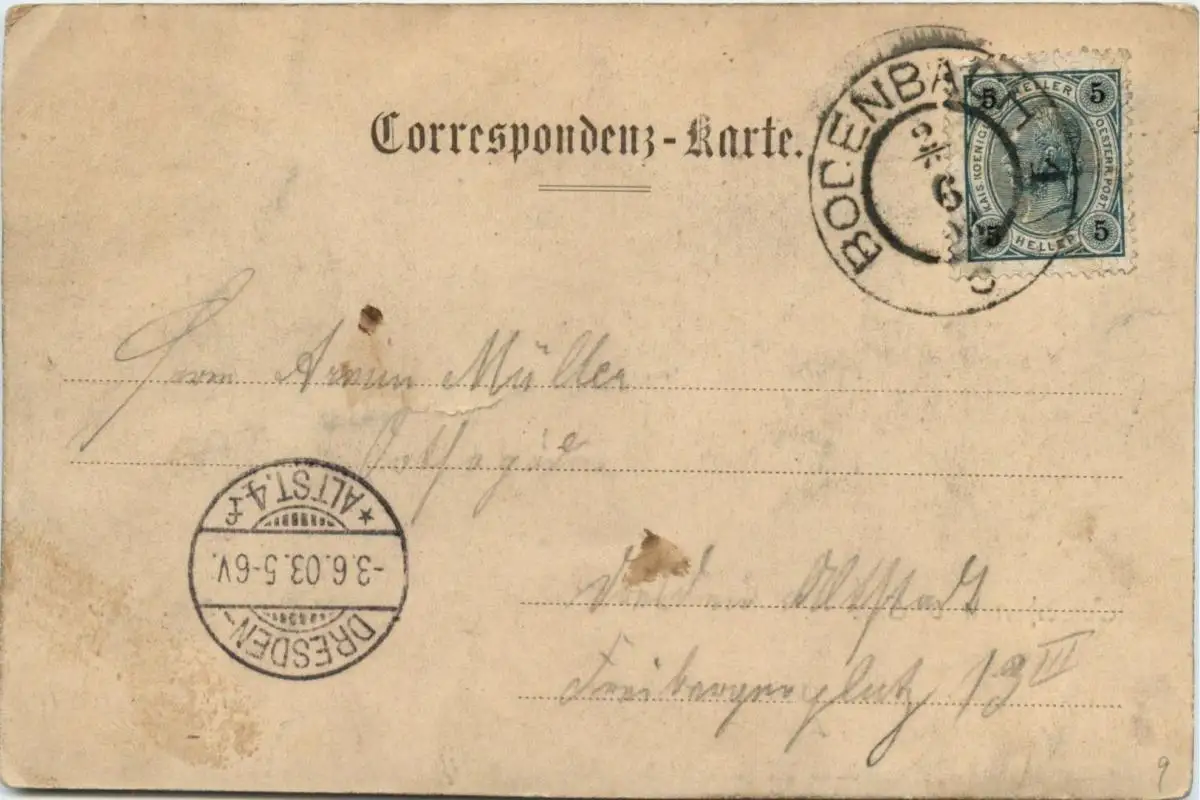 Correspondenz-Karte.
BODENBACH
2/6
5 HELLER 5
KAIS. KOENIGL. OESTERR. POST.
5 HELLER 5
Herrn Armin Müller
Dresden Altstadt
Freibergerplatz 13 III
DRESDEN-
-3.6.03.5-6V.
*ALTST.4 f
9